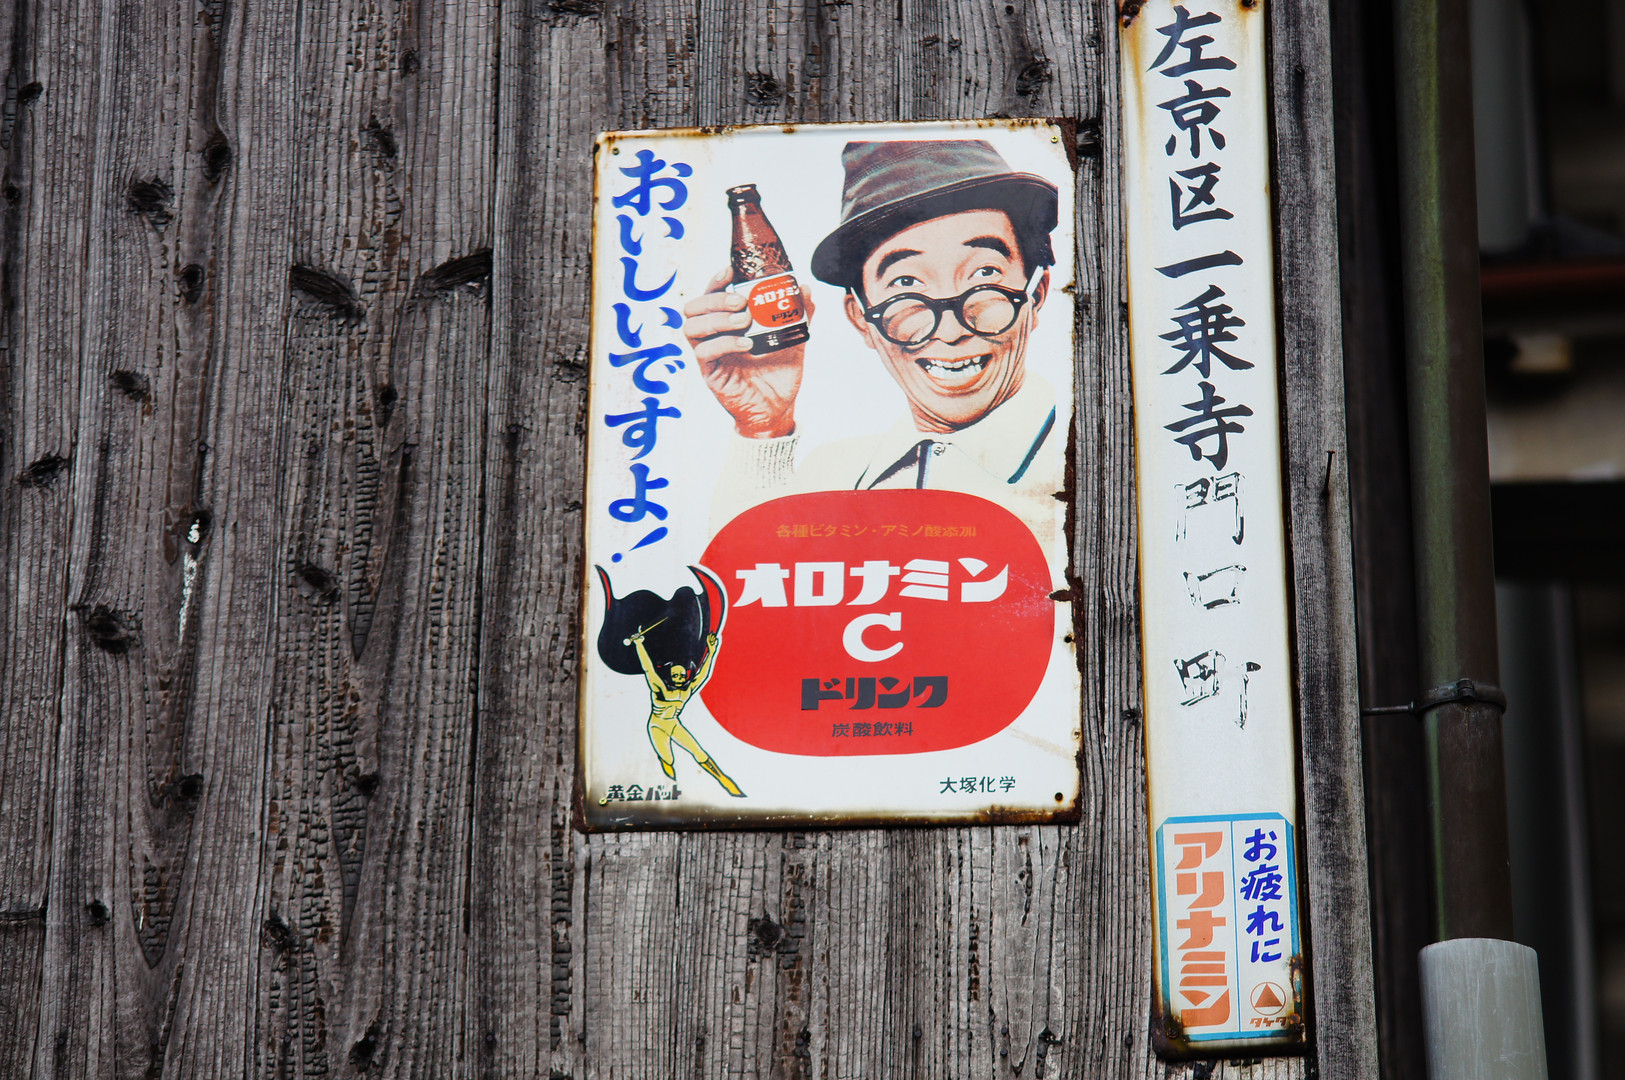 おいしいですよ!
オロナミン
C
ドリンク
各種ビタミン・アミノ酸添加
オロナミン
C
ドリンク
炭酸飲料
黄金バット
大塚化学
左京区一乗寺門口町
お疲れに
アリナミン
タケダ